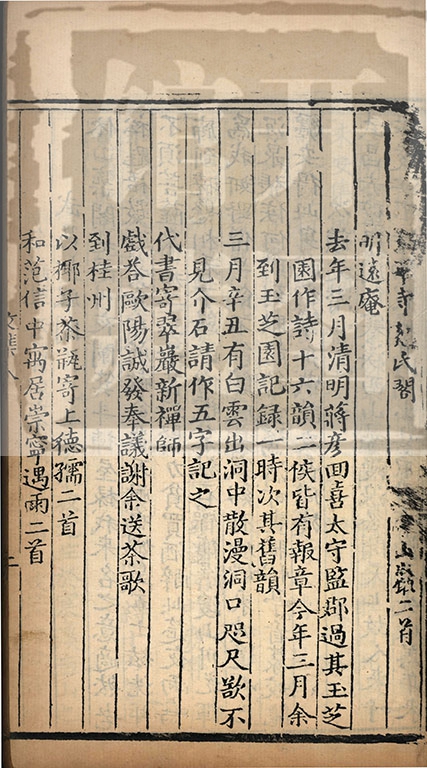 寺
民閣
二首
明遠庵
去年三月清明蔣彥回喜太守監郡過其玉芝
園作詩十六韻二侯皆有報章今年三月余
到玉芝園記錄一時次其舊韻
三月辛丑有白雲出洞中散漫洞口咫尺欲不
見介石請作五字記之
代書寄翠巖新禪師
戲荅歐陽誠發奉議謝余送茶歌
到桂州
以椰子茶瓶寄上德孺二首
和范信中寓居崇寧遇雨二首